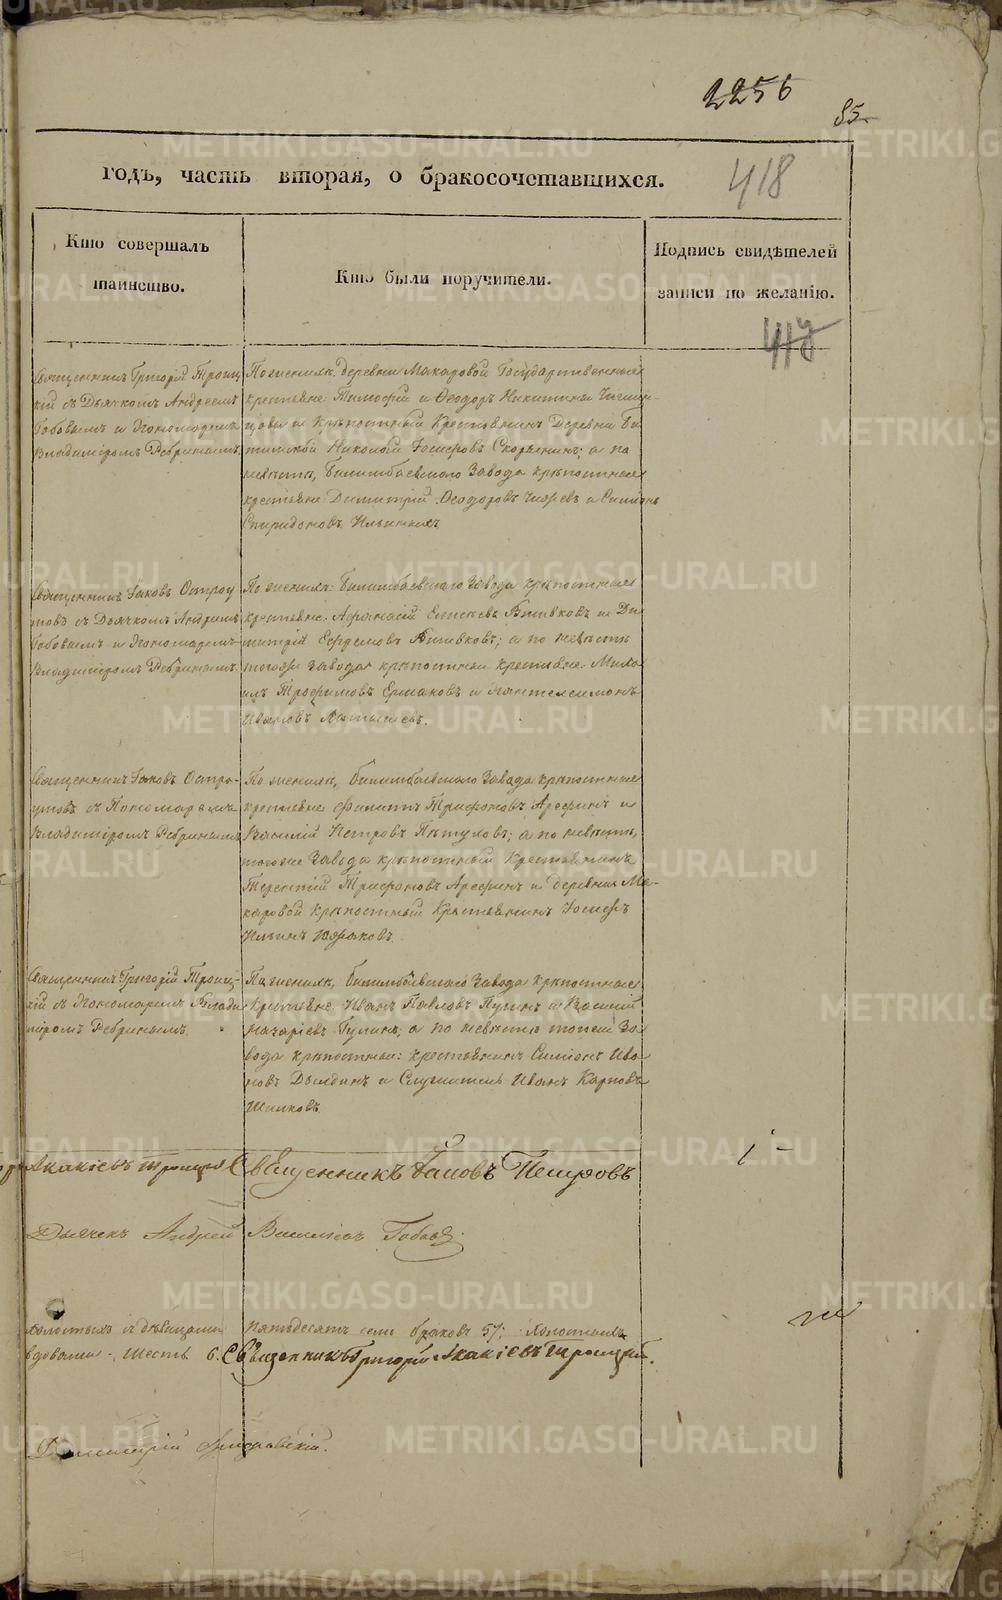 2256
85
годъ, часть вторая, о бракосочетавшихся.
418
Кто совершалъ
таинство.
Кто были поручители.
Подпись свидѣтелей
записи по желанію.
Священникъ Григорій Троиц
кій съ Дьячкомъ Андреемъ
Гобовымъ и Пономаремъ
Владиміромъ Ребринымъ
По женихѣ, деревни Макаровой Государственные
крестьяне Тимофей и Ѳеодоръ Никитины
и Крѣпостный Крестьянинъ Деревни Би
Николай Іосифовъ а по
невѣстѣ, Билимбаевскаго Завода крѣпостные
крестьяне Димитрій Ѳеодоровъ и Симеонъ
Спиридоновъ Ильиныхъ
Священникъ Іаковъ Остроу
мовъ съ Дьячкомъ Андреемъ
Гобовымъ и Пономаремъ
Владиміромъ Ребринымъ
По женихѣ: Билимбаевскаго Завода крѣпостные
крестьяне: Афанасій и Ди
митрій Ефремовъ а по невѣстѣ
тогоже завода крѣпостные крестьяне: Миха
илъ Трофимовъ Ермаковъ и Пантелеимонъ
Ивановъ
Священникъ Іаковъ Остро-
умовъ съ Пономаремъ
Владиміромъ Ребринымъ
По женихѣ, Билимбаевскаго Завода крѣпостные
крестьяне Филиппъ Трифоновъ Арефинъ и
Василій Петровъ Пѣтуховъ; а по невѣстѣ,
тогоже Завода крѣпостный крестьянинъ
Терентій Трифоновъ Арефинъ и деревни Ма-
каровой крѣпостный Крестьянинъ Іосифъ
Ильинъ
Священникъ Григорій Троиц-
кій съ Пономаремъ Влади
міромъ Ребринымъ
По женихѣ, Билимбаевскаго Завода крѣпостные
Крестьяне Иванъ Павловъ и Василій
а по невѣстѣ тогоже За
вода крѣпостные: крестьянинъ Симеонъ Ива
новъ и Служитель Иванъ Карповъ
Акакіевъ Троицкій Священникъ Іаковъ Петровъ
Дьячекъ Андрей Васильевъ Гобовъ
холостыхъ съ дѣвицами пятьдесятъ семь браковъ 57; Холостыхъ
вдовами - шесть 6. Священникъ Григорій Акакіевъ Троицкій.
METRIKI.GASO-URAL.RU